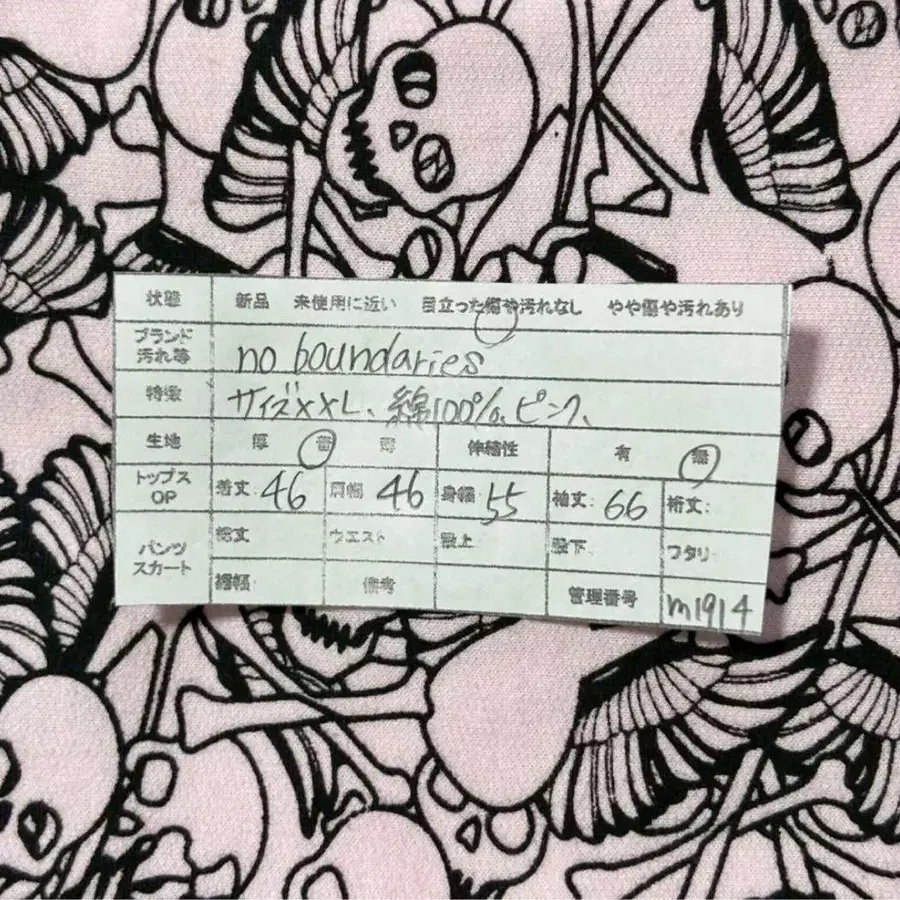 状態 新品 未使用に近い 目立った傷や汚れなし やや傷や汚れあり
ブランド no boundaries
汚れ等
特徴 サイズXXL、綿100%、ピンク、
生地 厚 普 薄 伸縮性 有 無
トップス OP 着丈: 46 肩幅 46 身幅: 55 袖丈: 66 裄丈:
パンツ スカート 総丈 ウエスト 股上 股下 ワタリ
裾幅: 備考 管理番号 m1914